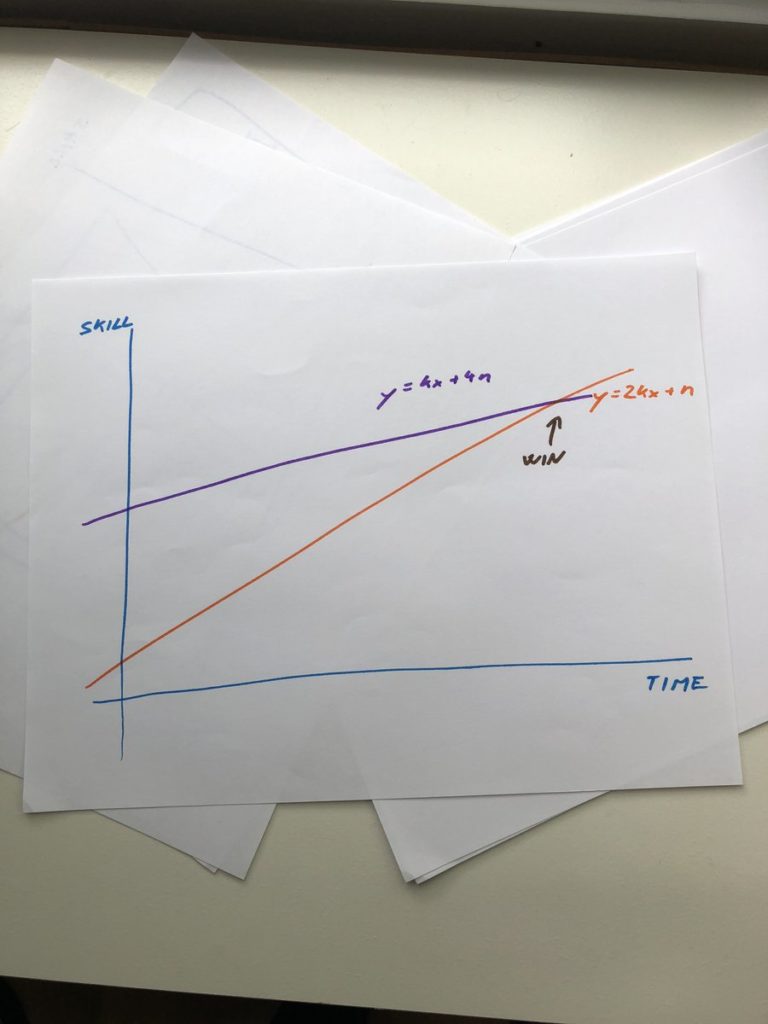 SKILL
y = kx + 4n
y = 2kx + n
WIN
TIME